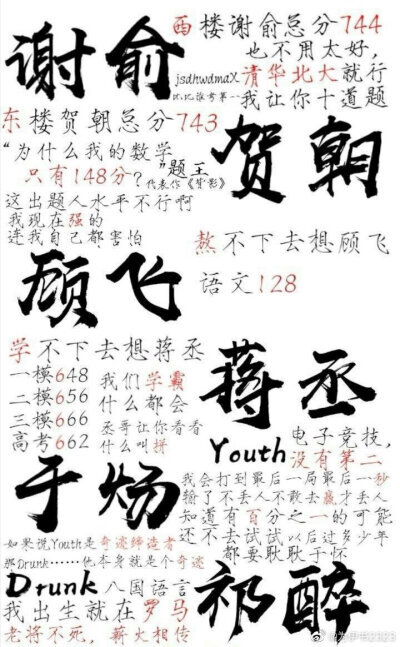 谢俞
西楼谢俞总分744
也不用太好，
jsdhwdmaX
清华北大就行
比比谁考第一
我让你十道题
东楼贺朝总分743
贺朝
“为什么我的数学
只有148分？”
题王
代表作《背影》
这出题人水平不行啊
我现在强的
连我自己都害怕
熬不下去想顾飞
顾飞
语文128
学不下去想蒋丞
蒋丞
一模648
二模656
三模666
高考662
我们学霸
什么都会
丞哥让你看看
什么叫拼
Youth
电子竞技，
没有第二
于炀
我会打到最后一局最后一秒
输了不丢人不敢去赢才丢人
知道有百分之一的可能
还不去试试以后过多少年
都要耿耿于怀
如果说Youth是奇迹缔造者
那Drunk……他本身就是个奇迹
Drunk
八国语言
祁醉
我出生就在罗马
老将不死，薪火相传